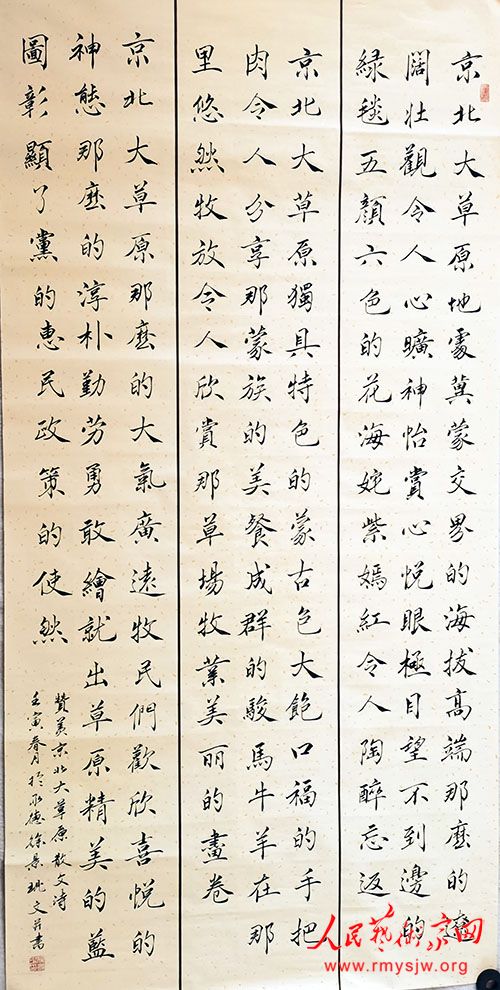 京北大草原地處冀蒙交界的海拔高端那麽的遼
闊壯觀令人心曠神怡賞心悅眼極目望不到邊的
綠毯五顏六色的花海姹紫嫣紅令人陶醉忘返
京北大草原獨具特色的蒙古色大飽口福的手把
肉令人分享那蒙族的美餐成群的駿馬牛羊在那
里悠然牧放令人欣賞那草場牧業美丽的畫卷
京北大草原那麽的大氣廣遠牧民們歡欣喜悅的
神態那麽的淳朴勤劳勇敢繪就出草原精美的藍
圖彰顯了黨的惠民政策的使然
贊美京北大草原散文诗
壬寅春月於承德徐景文并書
人民藝術家网
www.rmysjw.org